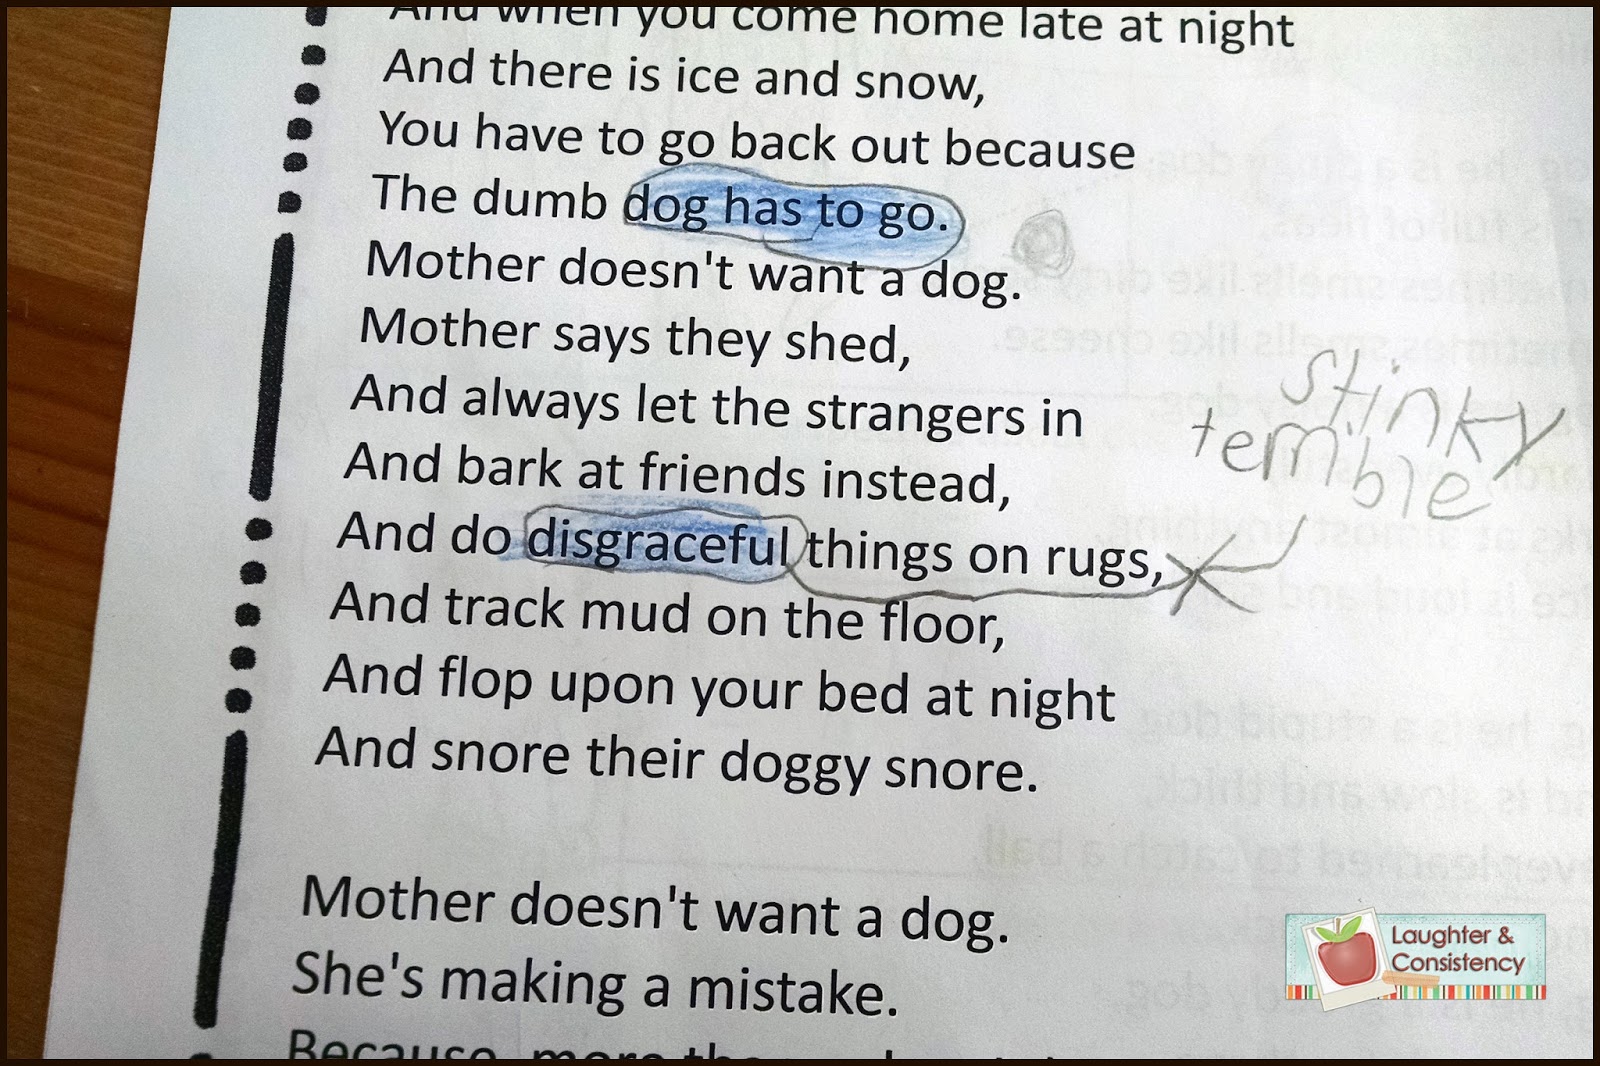 And when you come home late at night
And there is ice and snow,
You have to go back out because
The dumb dog has to go.
Mother doesn't want a dog.
Mother says they shed,
And always let the strangers in
And bark at friends instead,
And do disgraceful things on rugs,
And track mud on the floor,
And flop upon your bed at night
And snore their doggy snore.
Mother doesn't want a dog.
She's making a mistake.
Because, more than
stinky
terrible
Laughter &
Consistency